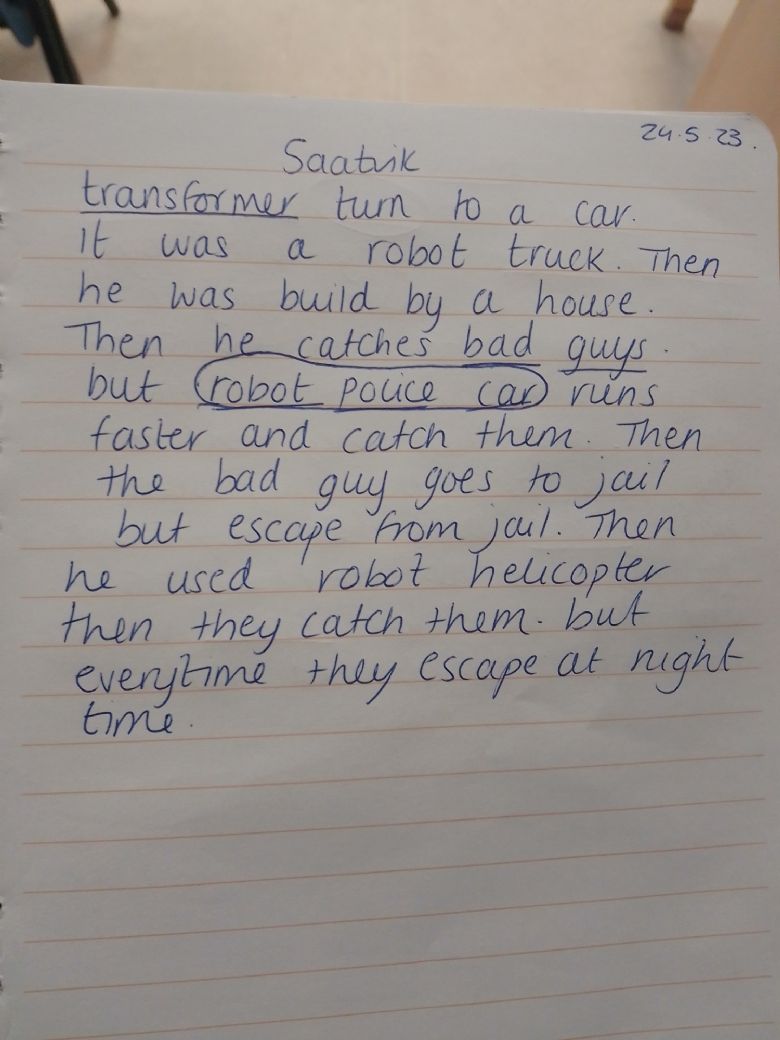 24.5.23.
Saatvik
transformer turn to a car.
It was a robot truck. Then
he was build by a house.
Then he catches bad guys.
but robot police car runs
faster and catch them. Then
the bad guy goes to jail
but escape from jail. Then
he used robot helicopter
then they catch them. but
everytime they escape at night
time.